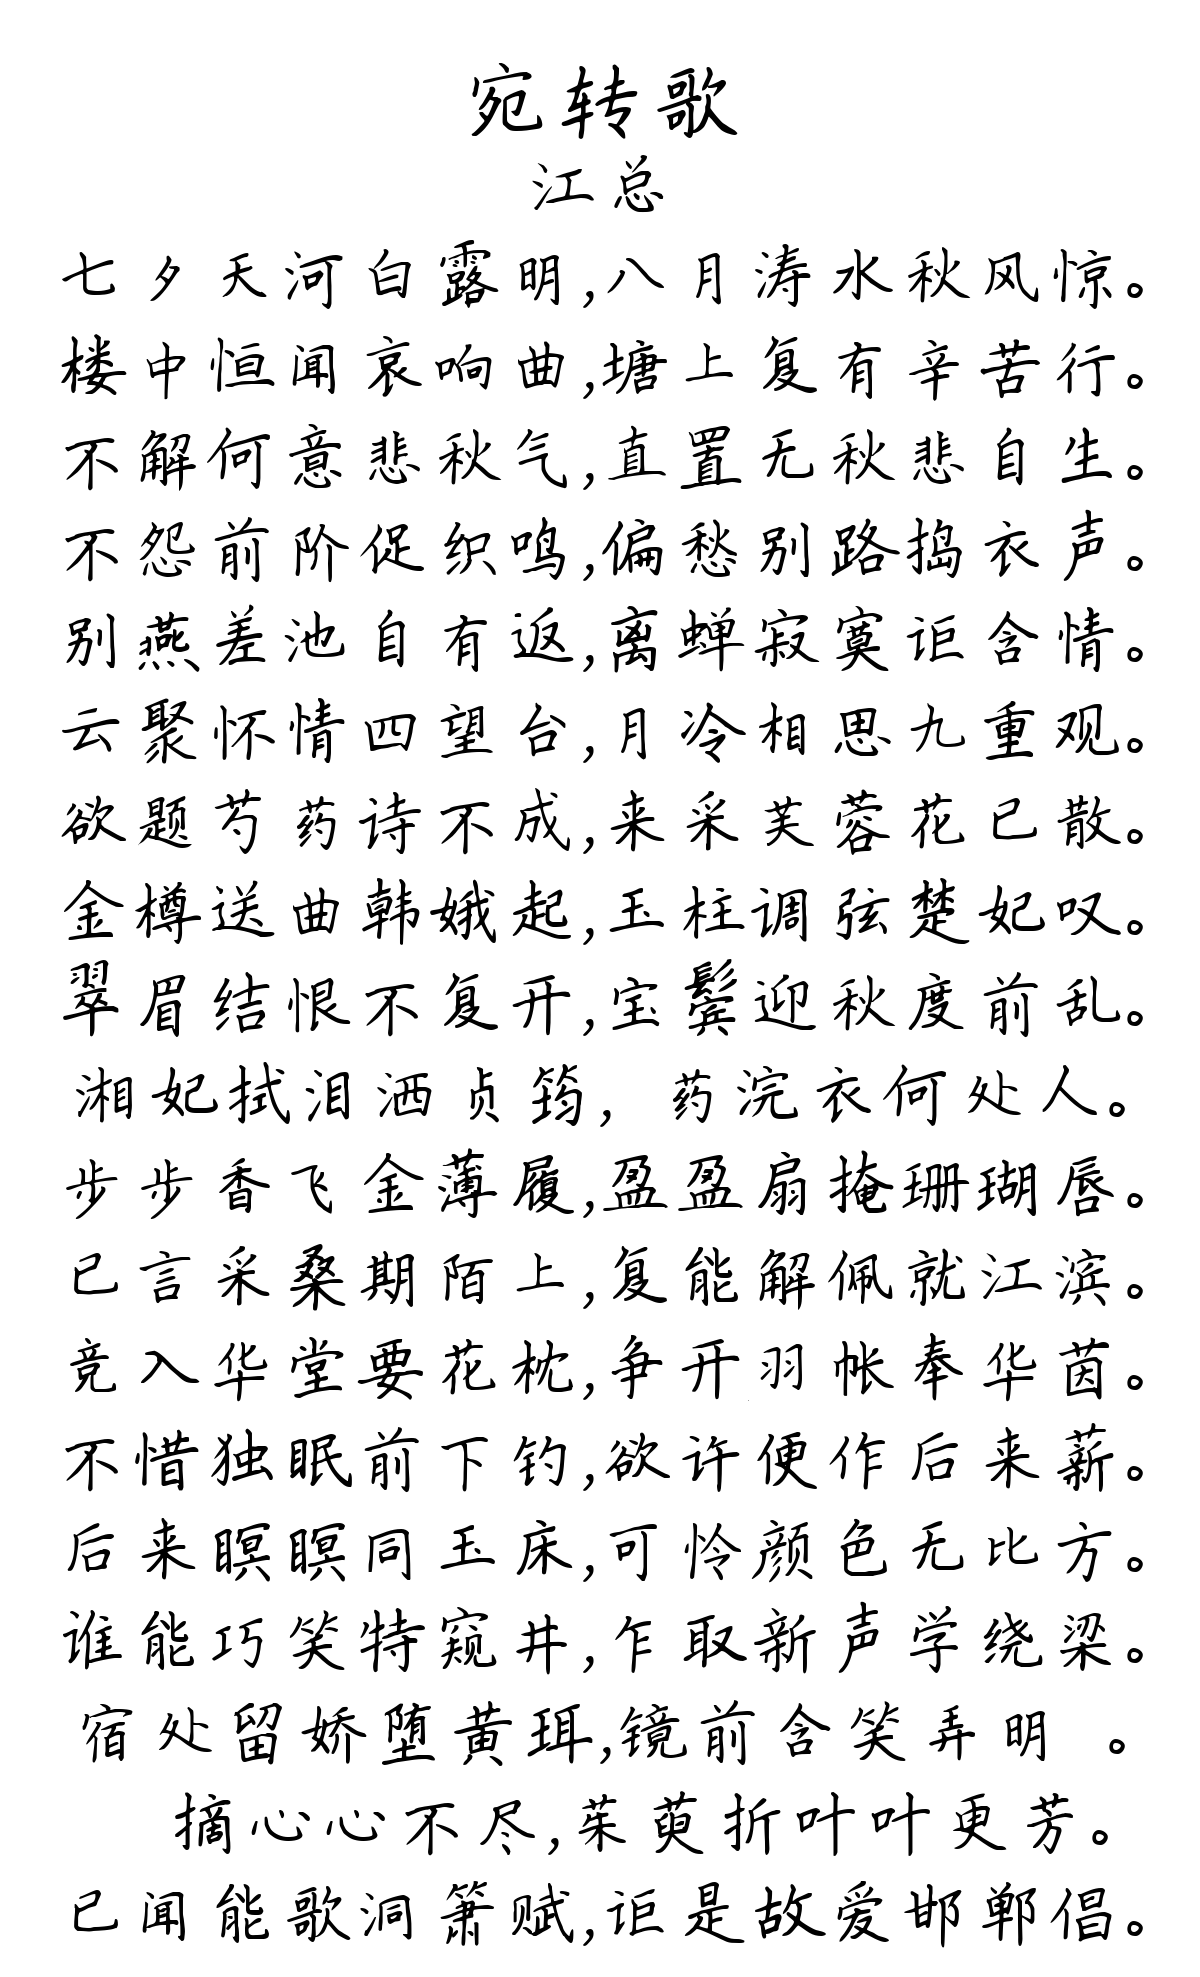 宛转歌
江总
七夕天河白露明,八月涛水秋风惊。
楼中恒闻哀响曲,塘上复有辛苦行。
不解何意悲秋气,直置无秋悲自生。
不怨前阶促织鸣,偏愁别路捣衣声。
别燕差池自有返,离蝉寂寞讵含情。
云聚怀情四望台,月冷相思九重观。
欲题芍药诗不成,来采芙蓉花已散。
金樽送曲韩娥起,玉柱调弦楚妃叹。
翠眉结恨不复开,宝鬓迎秋度前乱。
湘妃拭泪洒贞筠,药浣衣何处人。
步步香飞金薄履,盈盈扇掩珊瑚唇。
已言采桑期陌上,复能解佩就江滨。
竞入华堂要花枕,争开羽帐奉华茵。
不惜独眠前下钓,欲许便作后来薪。
后来瞑瞑同玉床,可怜颜色无比方。
谁能巧笑特窥井,乍取新声学绕梁。
宿处留娇堕黄珥,镜前含笑弄明 。
摘心心不尽,茱萸折叶叶更芳。
已闻能歌洞箫赋,讵是故爱邯郸倡。